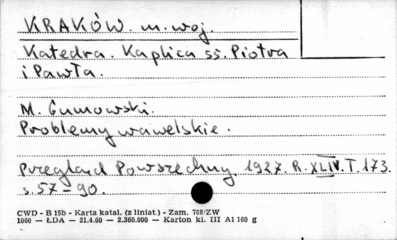 KRAKÓW. m. woj.
Katedra. Kaplica śś. Piotra
i Pawła.
M. Gumowski.
Problemy wawelskie.
Przegląd Powszechny. 1927. R. XLIV. T. 173.
s. 57-90.
CWD - B 15b - Karta katal. (z liniat.) - Zam. 788/ZW
1060 — ŁDA — 21.4.60 — 2.360.000 — Karton kl. III A1 160 g